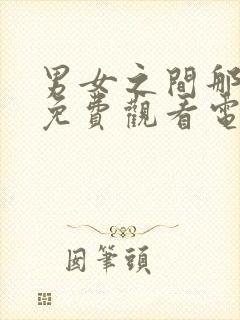 男女之間那
免費觀看電
囡筆頭